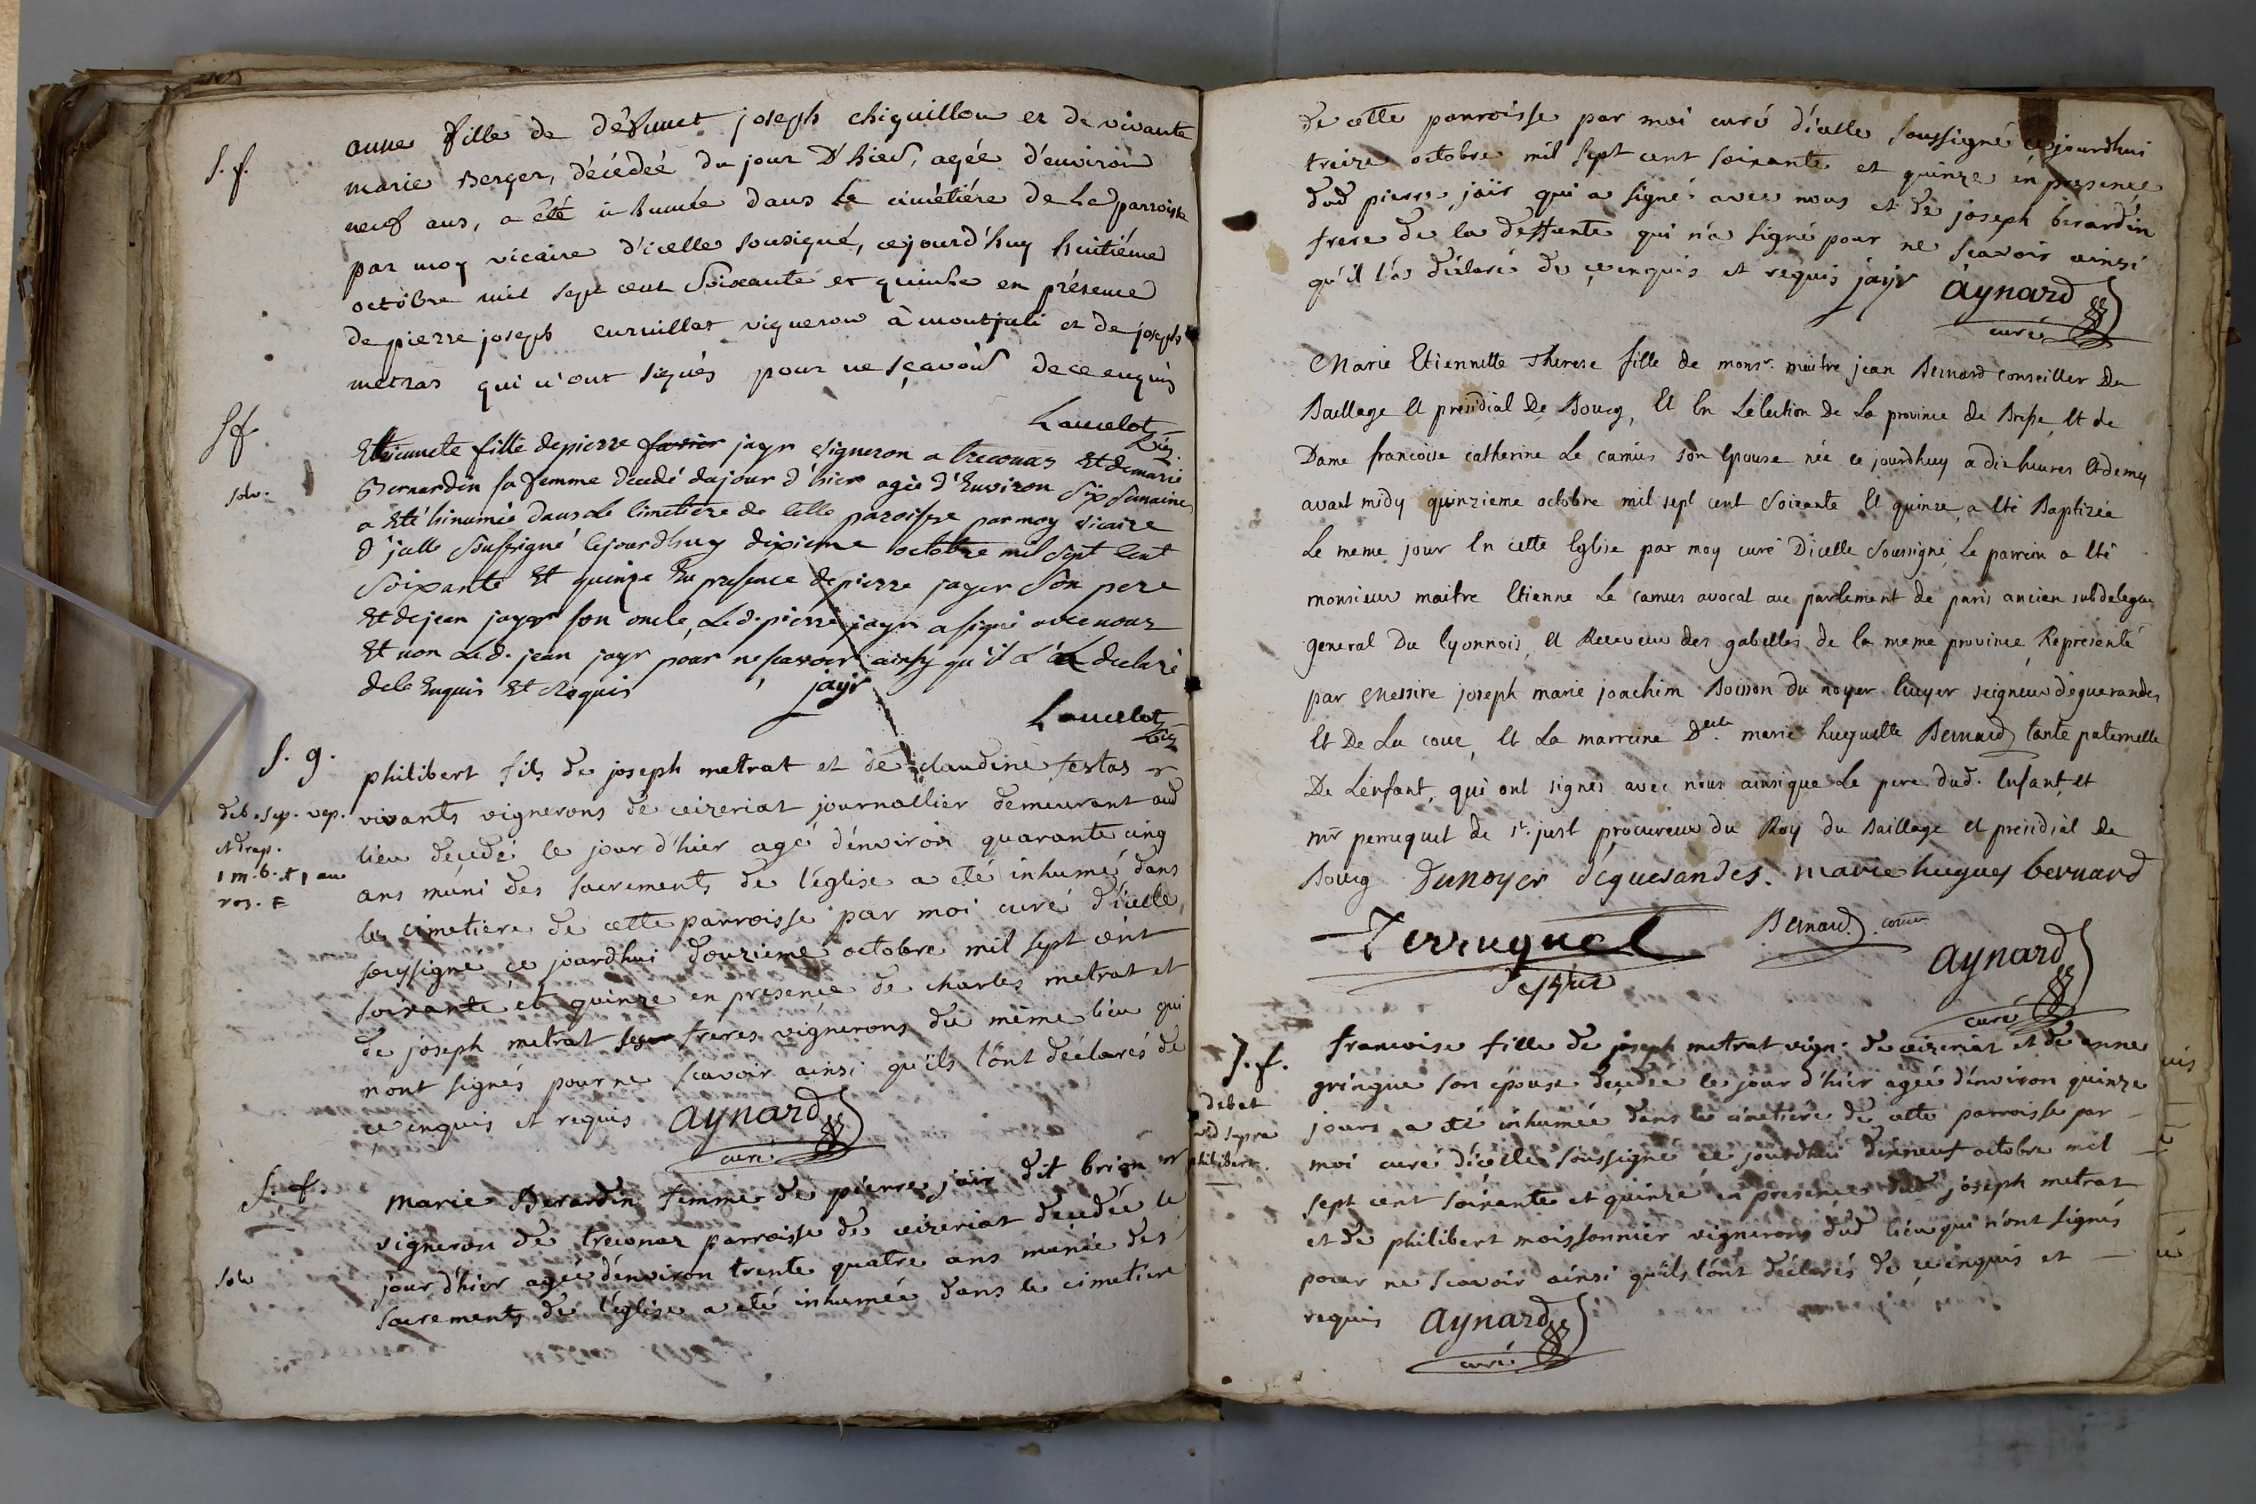 s. f.
anne fille de défunct joseph chiquillon et de vivante
marie Berger, décédeé du jour D'hier, agéé d'environ
neuf ans, a été inhumée dans Le cimétiére de La parroisse
par moy vicaire d'icelle sousigné, cejourd'huy huitiéme
octobre mil sept cent Soixante et quinse en présence
de pierre joseph curnillat vigneron à montjuli et de joseph
metras qui n'ont signés pour ne sçavoir de ce enquis
Lancelot
Vic.
Sf.
solv.
Etiennete fille de pierre favier jayr vigneron a treconas Et de marie
Bernardin sa femme decedé du jour d'hier agée d'Environ Six Semaines
a Eté hinumée dans Le Cimetiere de Cette paroisse par moy vicaire
d'jcelle Soussigné Cejourdhuy dixieme octobre mil Sept Cent
Soixante Et quinze En presence de pierre jayr Son pere
Et de jean jayr son oncle, Le d. pierre jayr a signé avec nous
Et non Le d. jean jayr pour ne scavoir ainsy qu'il L'a declaré
de Ce Enquis Et Requis jayr
Lancelot
Vic
s. g.
deb. sep. vep.
et drap.
1 m. b. et 1 au
philibert fils de joseph metrat et de claudine festas
vivants vignerons de ceizeriat journallier demeurant aud
lieu decedé le jour d'hier agé d'environ quarante cinq
ans muni des sacrements de l'église a eté inhumé dans
le cimetiere de cette parroisse par moi curé d'icelle
soussigné ce jourdhui douzieme octobre mil sept cent
soixante et quinze en presence de charles metrat et
de joseph metrat ses freres vignerons du même lieu qui
n'ont signés pour ne scavoir ainsi qu'ils l'ont déclarés de
ce enquis et requis aynard
curé
s. f.
solv
marie Berardin femme de pierre jair dit brion
vigneron de treconaz parroisse de ceizeriat decedée le
jour d'hier agée d'environ trente quatre ans munie des
sacrements de l'église a eté inhumée dans le cimetiere
de cette parroisse par moi curé d'icelle soussigné ce jourdhui
treize octobre mil sept cent soixante et quinze en presence
dud pierre jaïr qui a signé avec nous et de joseph berardin
frere de la deffunte qui n'a signé pour ne scavoir ainsi
qu'il l'a déclaré de ce enquis et requis jayr aynard
curé
Marie Etiennette Therese fille de monsr. maitre jean Bernard conseiller Du
Baillage Et presidial De Bourg, Et En Lelection de La province de Bresse, Et de
Dame francoise catherine Le camus son Epouse née ce jourdhuy a dix heures Et demy
avant midy quinzieme octobre mil sept cent Soixante Et quinze, a Eté Baptizée
Le meme jour En cette Eglise par moy curé Dicelle Soussigné, Le parrein a Eté
monsieur maitre Etienne Le camus avocat au parlement de paris ancien subdelegue
general Du Lyonnois, Et Receveur des gabelles de la meme province, Représenté
par Messire joseph marie joachim Boisson du noyer Ecuyer seigneur deguerandes
Et De La cour, Et La marreine Delle. marie huguette Bernard tante paternelle
De Lenfant, qui ont signés avec nous ainsi que Le pere dud. Enfant, et
mr perruquet de st. just procureur du Roy du Baillage et presidial de
Bourg Dunoyer déguerandes. marie huguet bernard
Perruquel Bernard conser
aynard
curé
s. f.
debet
ut supra
philibert.
francoise fille de joseph metrat vign: de ceizeriat et de anne
gringue son épouse decedée le jour d'hier agée d'environ quinze
jours a eté inhumée dans le cimetiere de cette parroisse par
moi curé d'icelle soussigné ce jourdhui dixneuf octobre mil
sept cent soixante et quinze en presences dud joseph metrat
et de philibert moissonnier vignerons dud lieu qui n'ont signés
pour ne scavoir ainsi qu'ils l'ont déclarés de ce enquis et
requis aynard
curé